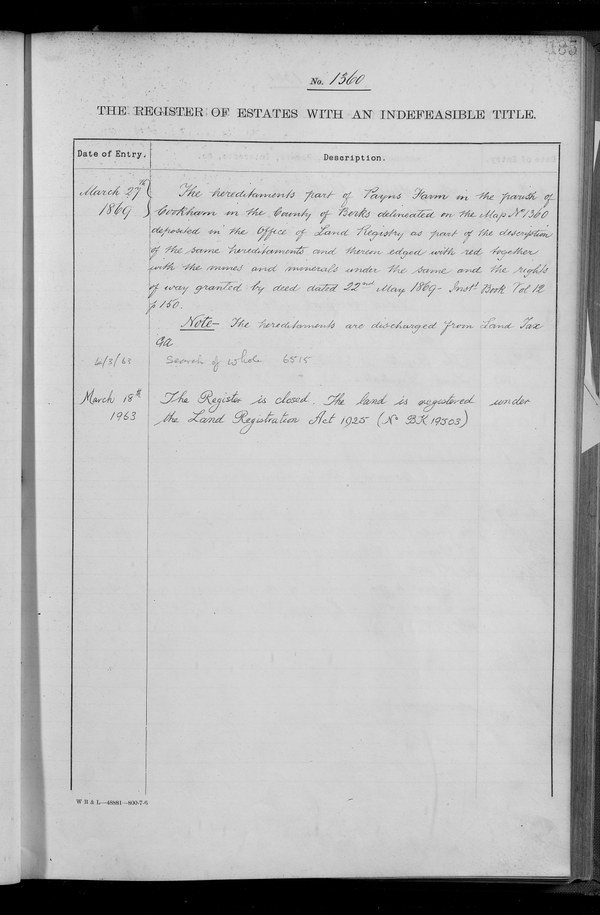 185
No. 1360
THE REGISTER OF ESTATES WITH AN INDEFEASIBLE TITLE.
Date of Entry. Description.
March 27th The hereditaments part of Payns Farm in the parish of
1869 Cookham in the County of Berks delineated on the Map No 1360
deposited in the Office of Land Registry as part of the description
of the same hereditaments and therein edged with red together
with the mines and minerals under the same and the rights
of way granted by deed dated 22nd May 1869 - Inst. Book Vol 12
p 150.
Note - The hereditaments are discharged from Land Tax
/3/63 Search of whole 6515
March 18th The Register is closed. The land is registered under
1963 the Land Registration Act 1925 (No BK 19503)
W B & L—48881—600-7-6